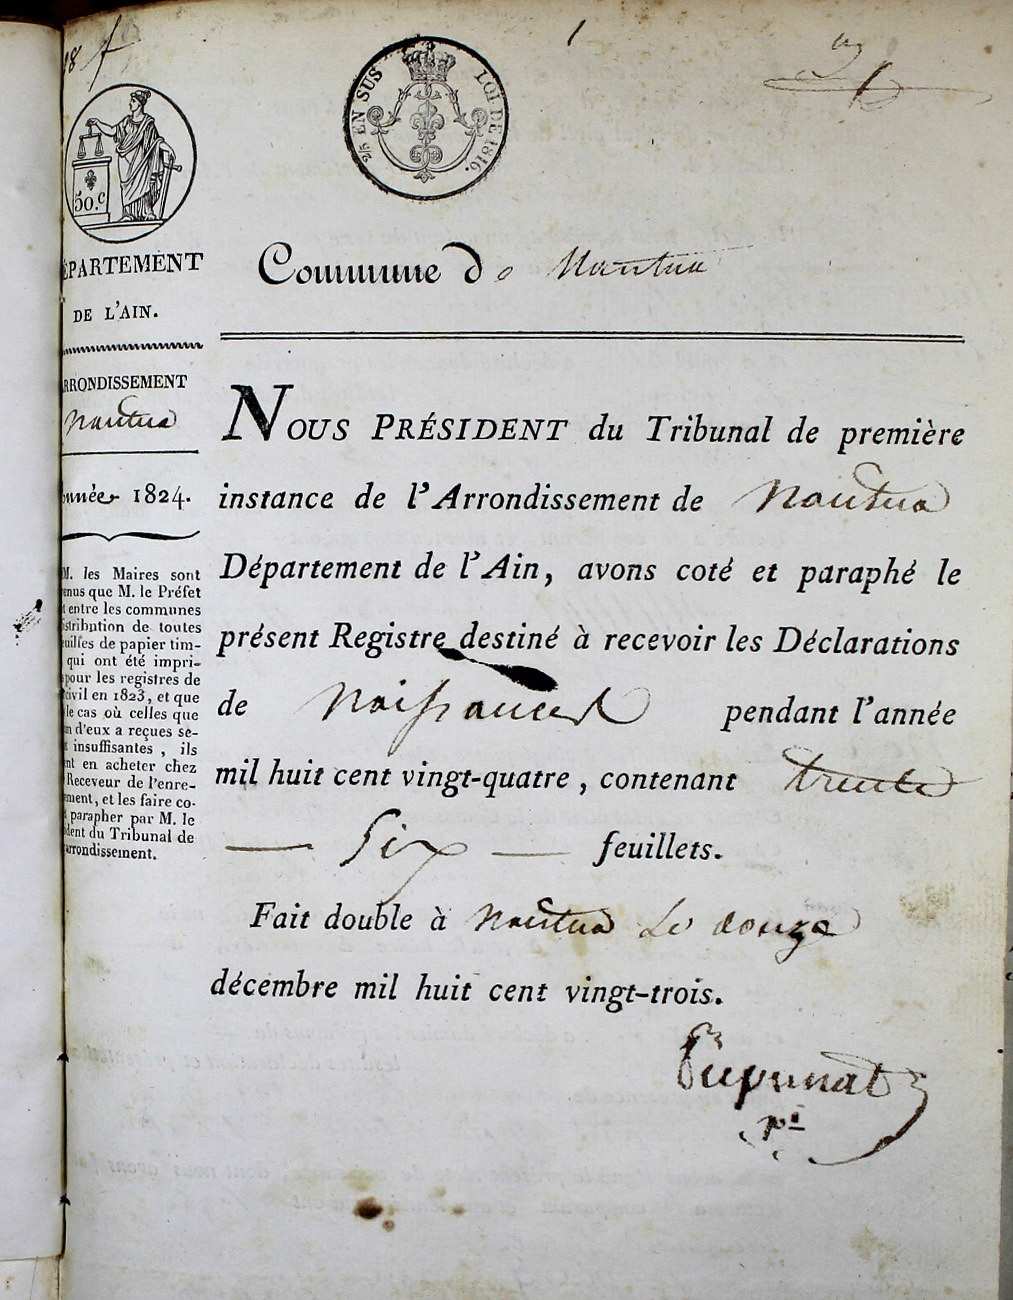 2/5 EN SUS LOI DE 1816.
1
50.c
ÉPARTEMENT
DE L'AIN.
RRONDISSEMENT
Nantua
nnée 1824.
M. les Maires sont
enus que M. le Préfet
t entre les communes
istribution de toutes
euilles de papier tim-
qui ont été impri-
pour les registres de
civil en 1823, et que
le cas où celles que
n d'eux a reçues se-
t insuffisantes, ils
nt en acheter chez
Receveur de l'enre-
ement, et les faire co-
parapher par M. le
ident du Tribunal de
arrondissement.
Commune de Nantua
NOUS PRÉSIDENT du Tribunal de première
instance de l'Arrondissement de Nantua
Département de l'Ain, avons coté et paraphé le
présent Registre destiné à recevoir les Déclarations
de Naissances pendant l'année
mil huit cent vingt-quatre, contenant trente
Six feuillets.
Fait double à Nantua Le douze
décembre mil huit cent vingt-trois.